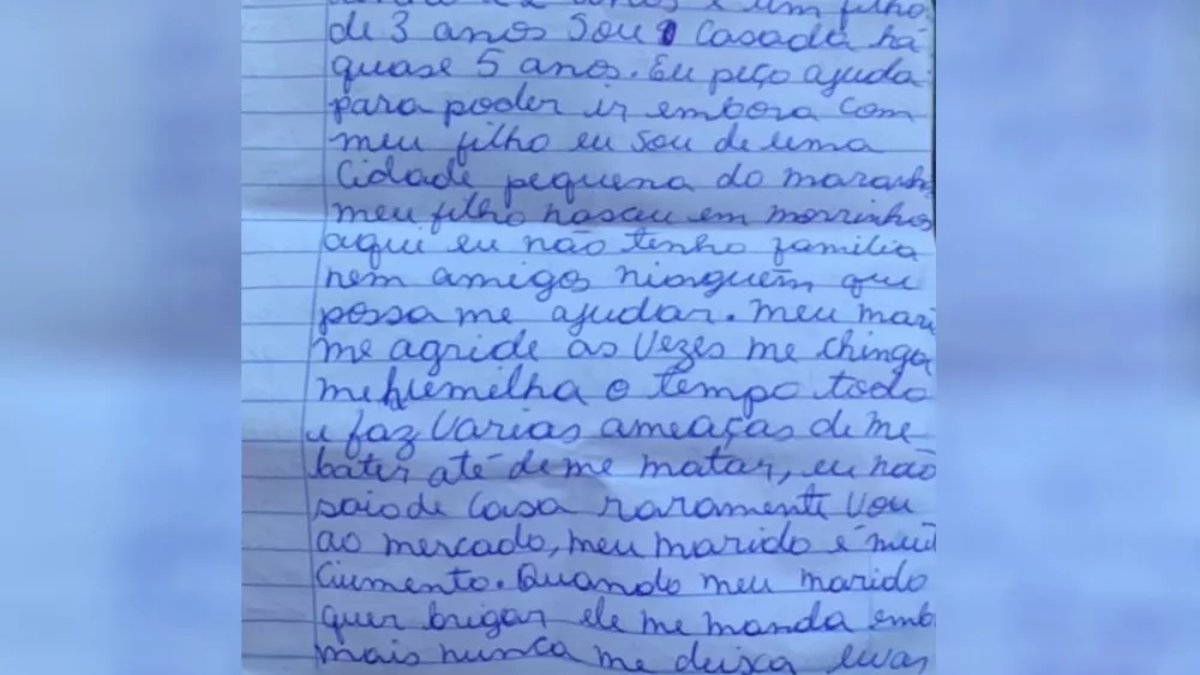 anos e um filho
de 3 anos Sou casada há
quase 5 anos. Eu peço ajuda
para poder ir embora com
meu filho eu sou de uma
cidade pequena do maranh
meu filho nasceu em morrinhos
aqui eu não tenho familia
nem amigos ninguém que
possa me ajudar. meu mari
me agride as vezes me chinga
me humilha o tempo todo
e faz varias ameaças de me
bater até de me matar, eu não
saio de casa raramente vou
ao mercado, meu marido é muit
ciumento. Quando meu marido
quer brigar ele me manda emb
mais nunca me deixa levar